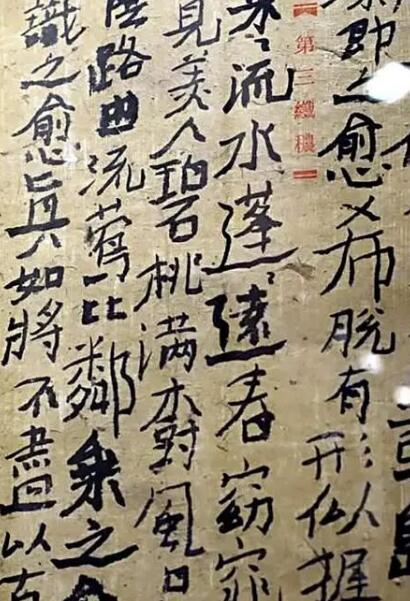 即之愈希脱有形似握
【第三纖穠】
采々流水蓬々遠春窈窕
見美人碧桃满樹風日
陰路曲流莺比鄰乘之
識之愈真如將不盡以古